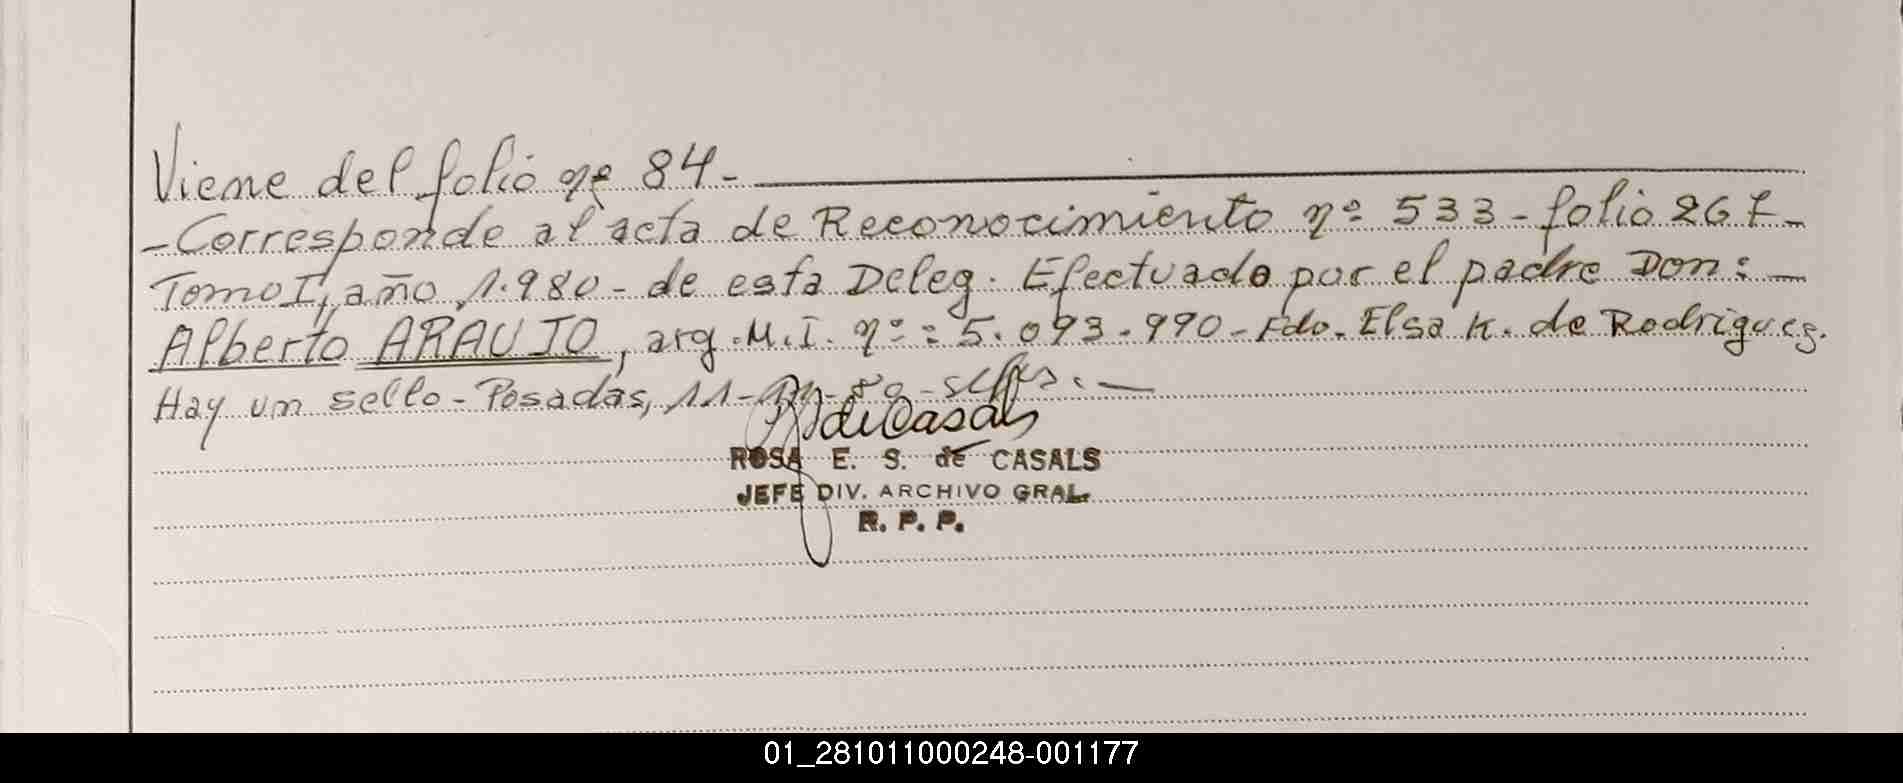 Viene del folio nº 84.-
-Corresponde al acta de Reconocimiento nº 533 - folio 267-
Tomo I, año 1.980 - de esta Deleg. Efectuado por el padre Don: -
Alberto ARAUJO, arg. M.I. nº: 5.093.990 - Fdo. Elsa K. de Rodrigues.
Hay un sello - Posadas, 11- -80-
de Casals
ROSA E. S. de CASALS
JEFE DIV. ARCHIVO GRAL.
R. P. P.
01_281011000248-001177